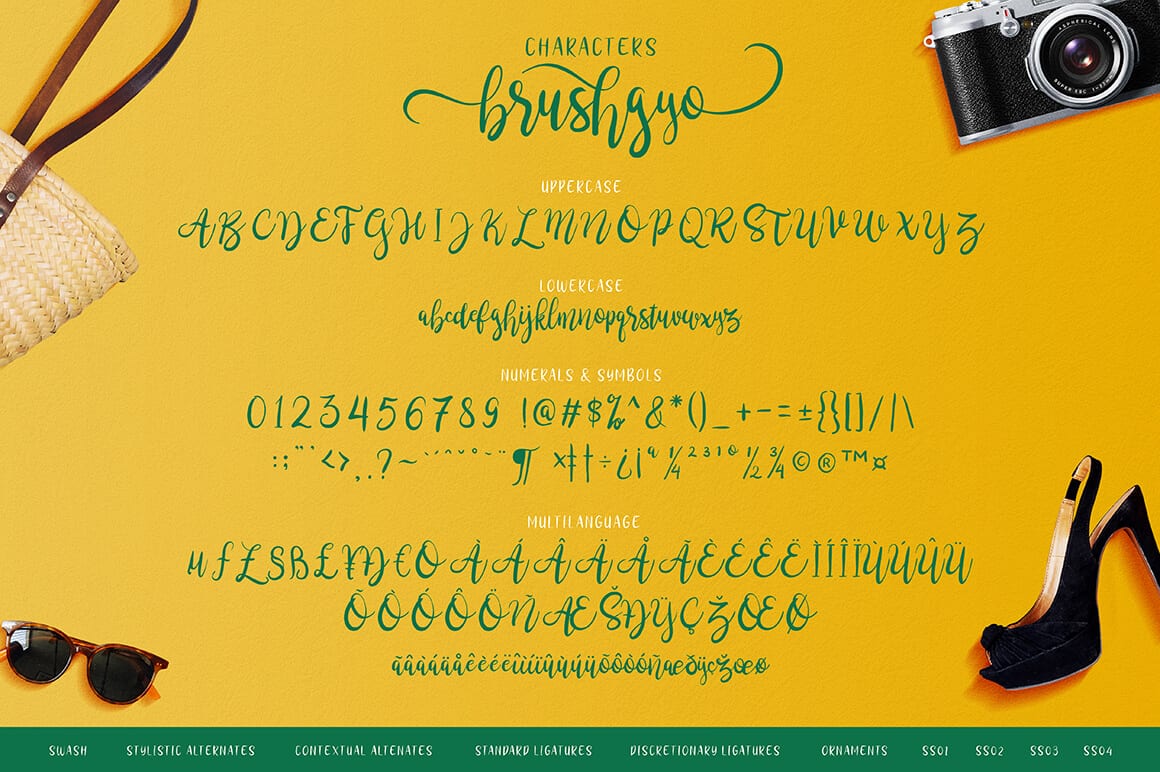 CHARACTERS
brushgyo
ASPHERICAL LENS
UPPERCASE
ABCDEFGHIJKLMNOPQRSTUVWXYZ
LOWERCASE
abcdefghijklmnopqrstuvwxyz
NUMERALS & SYMBOLS
0123456789 !@#$%^&*()_+-=±{}[]/|\
:;"'<>,.?~`´ˆ˜˘°~¨¶ ×‡†÷¿¡ª¼²³¹º½¾©®™¤
MULTILANGUAGE
µƒ£§ß₤¥Ð€ÒÀÁÂÄÀÅÃÈÉÊËÌÍÎÏÙÚÛÜ
ÕÒÓÔÖÑÆŠÐŸÇŽŒØ
ãâàáäåêèéëîìíïûùúüõôòóñæðÿçžœø
SWASH STYLISTIC ALTERNATES CONTEXTUAL ALTENATES STANDARD LIGATURES DISCRETIONARY LIGATURES ORNAMENTS SS01 SS02 SS03 SS04